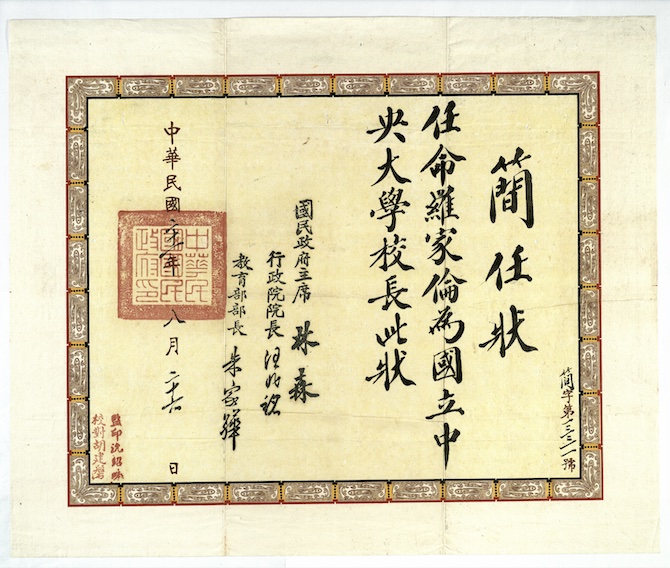 簡任狀
任命羅家倫為國立中
央大學校長此狀
國民政府主席 林森
行政院院長 汪兆銘
教育部部長 朱家驊
中華民國二十一年八月二十六日
中華民
國國民
政府印
簡字第三三一號
監印沈紹
校對胡建